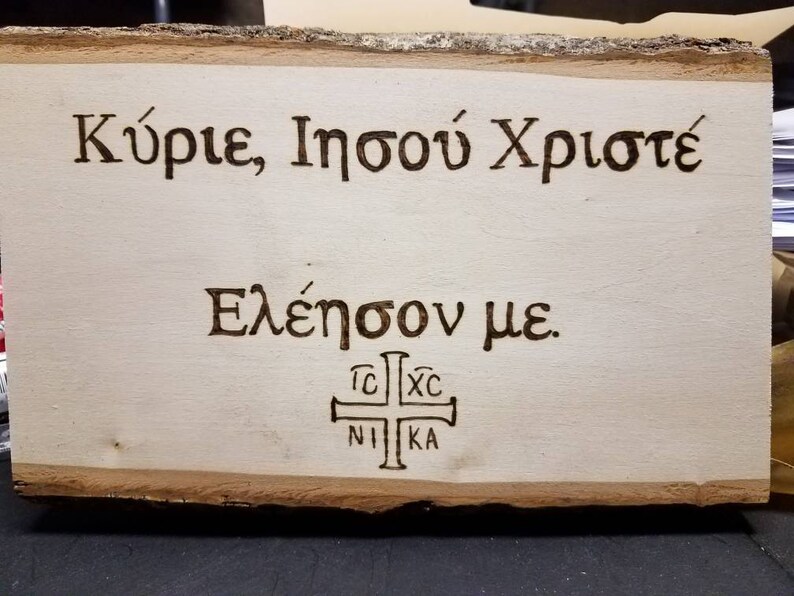 Κύριε, Ιησού Χριστέ
Ελέησον με.
ΙC XC
ΝΙ ΚΑ